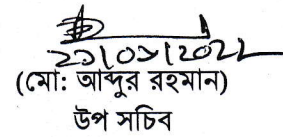 ২০/০১/২০২২
(মো: আব্দুর রহমান)
উপ সচিব